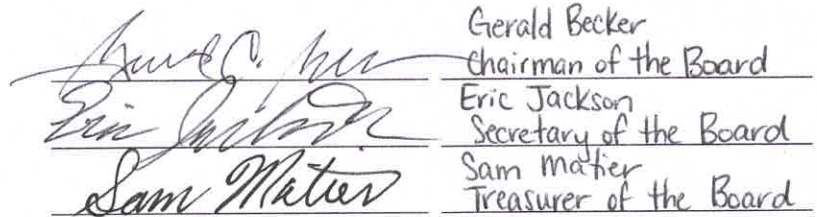 Gerald Becker
Chairman of the Board
Eric Jackson
Eric Jackson
Secretary of the Board
Sam Matier
Sam Matier
Treasurer of the Board